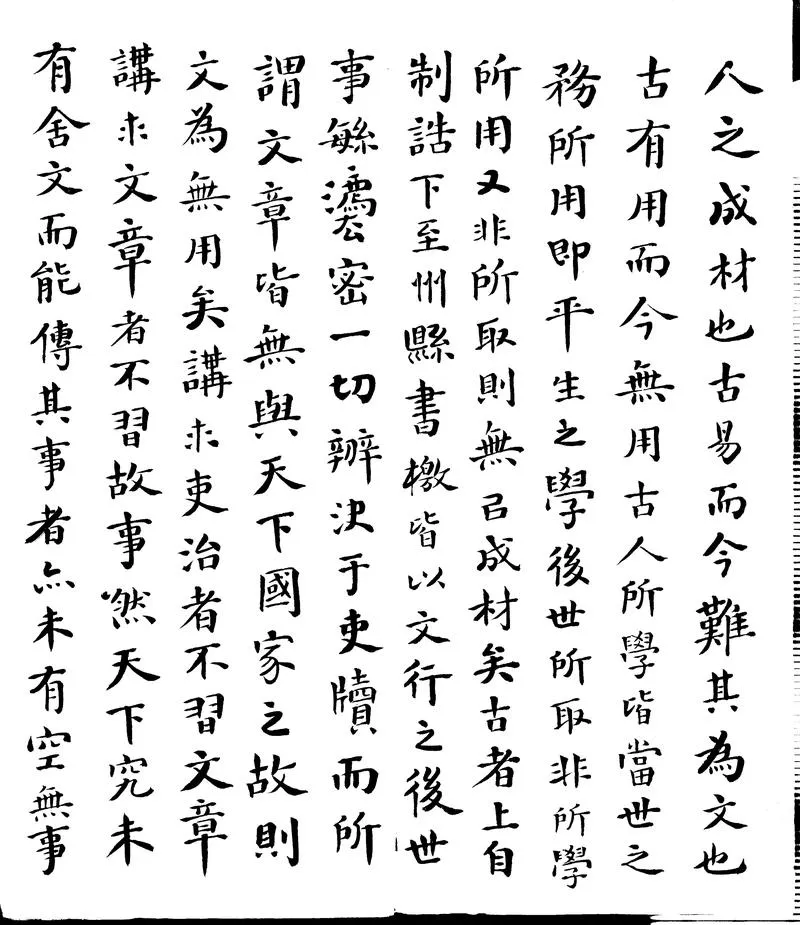 人之成材也古易而今難其為文也
古有用而今無用古人所學皆當世之
務所用即平生之學後世所取非所學
所用又非所取則無已成材矣古者上自
制誥下至州縣書檄皆以文行之後世
事繇密一切辦決于吏牘而所
謂文章皆無與天下國家之故則
文為無用矣講求吏治者不習文章
講求文章者不習故事然天下究未
有舍文而能傳其事者亦未有空無事